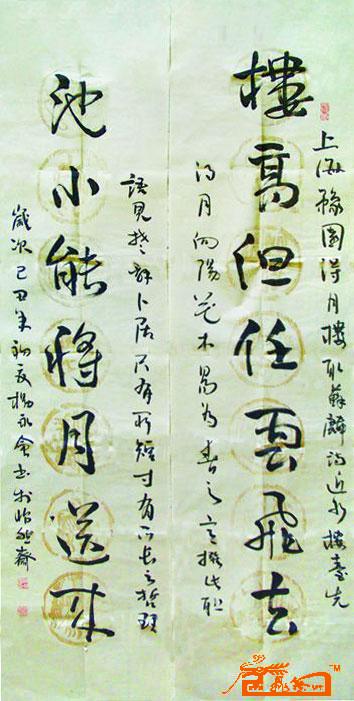 上海豫園得月樓取蘇麟詩近水樓臺先
樓高但任雲飛去
得月向陽花木易為春之意撰此聯
語見楚辭卜居尺有所短寸有所長之哲理
池小能將月送來
歲次己丑年初夏楊永書於怡然齋
TM